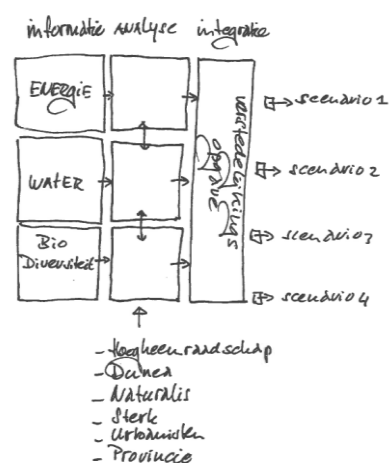 informatie analyse integratie
ENERGIE
WATER
Bio
Diversiteit
verstedelijkings
opgave
scenario 1
scenario 2
scenario 3
scenario 4
- Hoogheemraadschap
- Dunea
- Naturalis
- Sterk
- Urbanisten
- Provincie